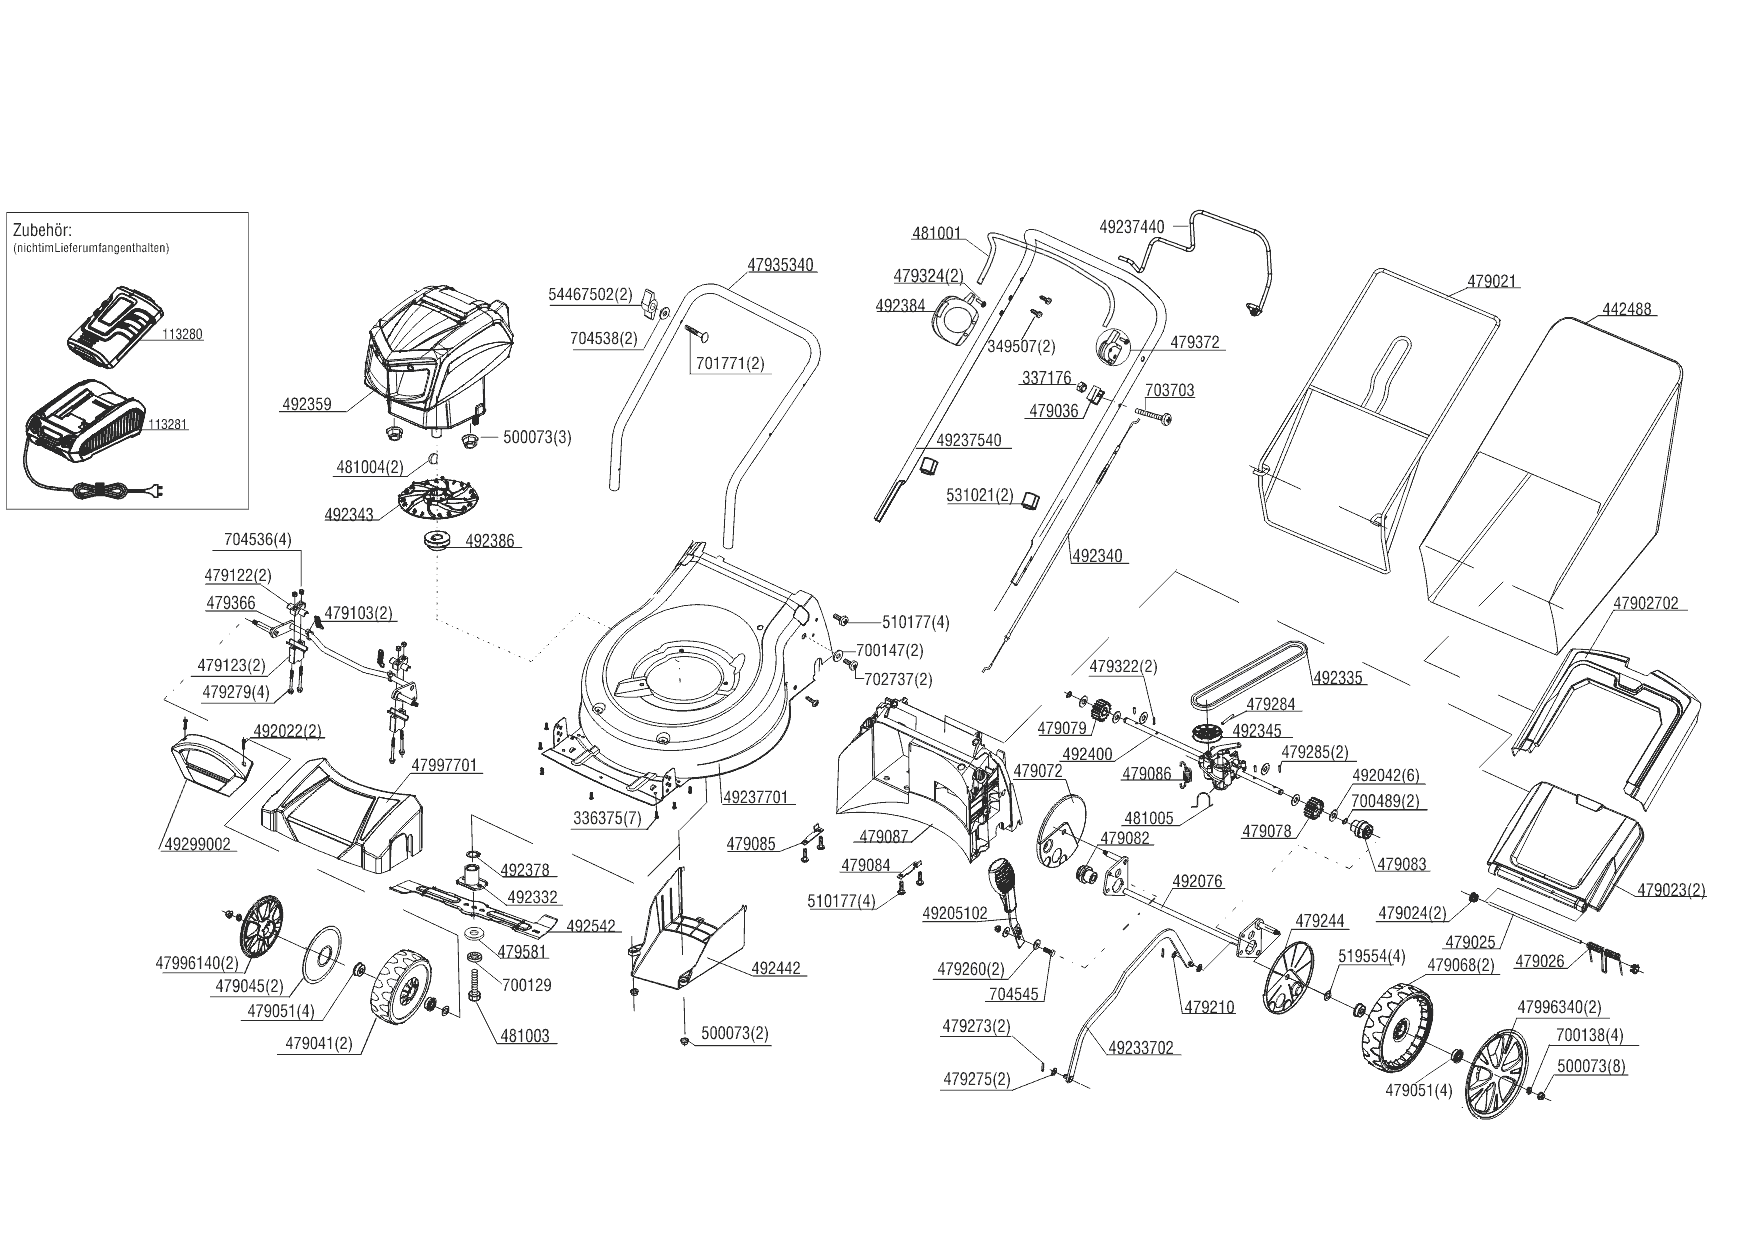 Zubehör:
(nichtimLieferumfangenthalten)
113280
113281
492359
500073(3)
481004(2)
492343
492386
704536(4)
479122(2)
479366
479103(2)
479123(2)
479279(4)
492022(2)
47997701
49299002
47996140(2)
479045(2)
479051(4)
479041(2)
492378
492332
492542
479581
700129
481003
54467502(2)
704538(2)
701771(2)
47935340
510177(4)
700147(2)
702737(2)
49237701
336375(7)
479085
492442
500073(2)
481001
479324(2)
492384
349507(2)
49237440
479372
337176
479036
703703
49237540
531021(2)
492340
479021
442488
47902702
479322(2)
479079
492400
492335
479284
492345
479285(2)
492042(6)
700489(2)
479086
481005
479078
479083
479072
479082
479087
479084
510177(4)
49205102
479260(2)
704545
492076
479244
479210
49233702
479273(2)
479275(2)
479023(2)
479024(2)
479025
479026
519554(4)
479068(2)
479051(4)
47996340(2)
700138(4)
500073(8)